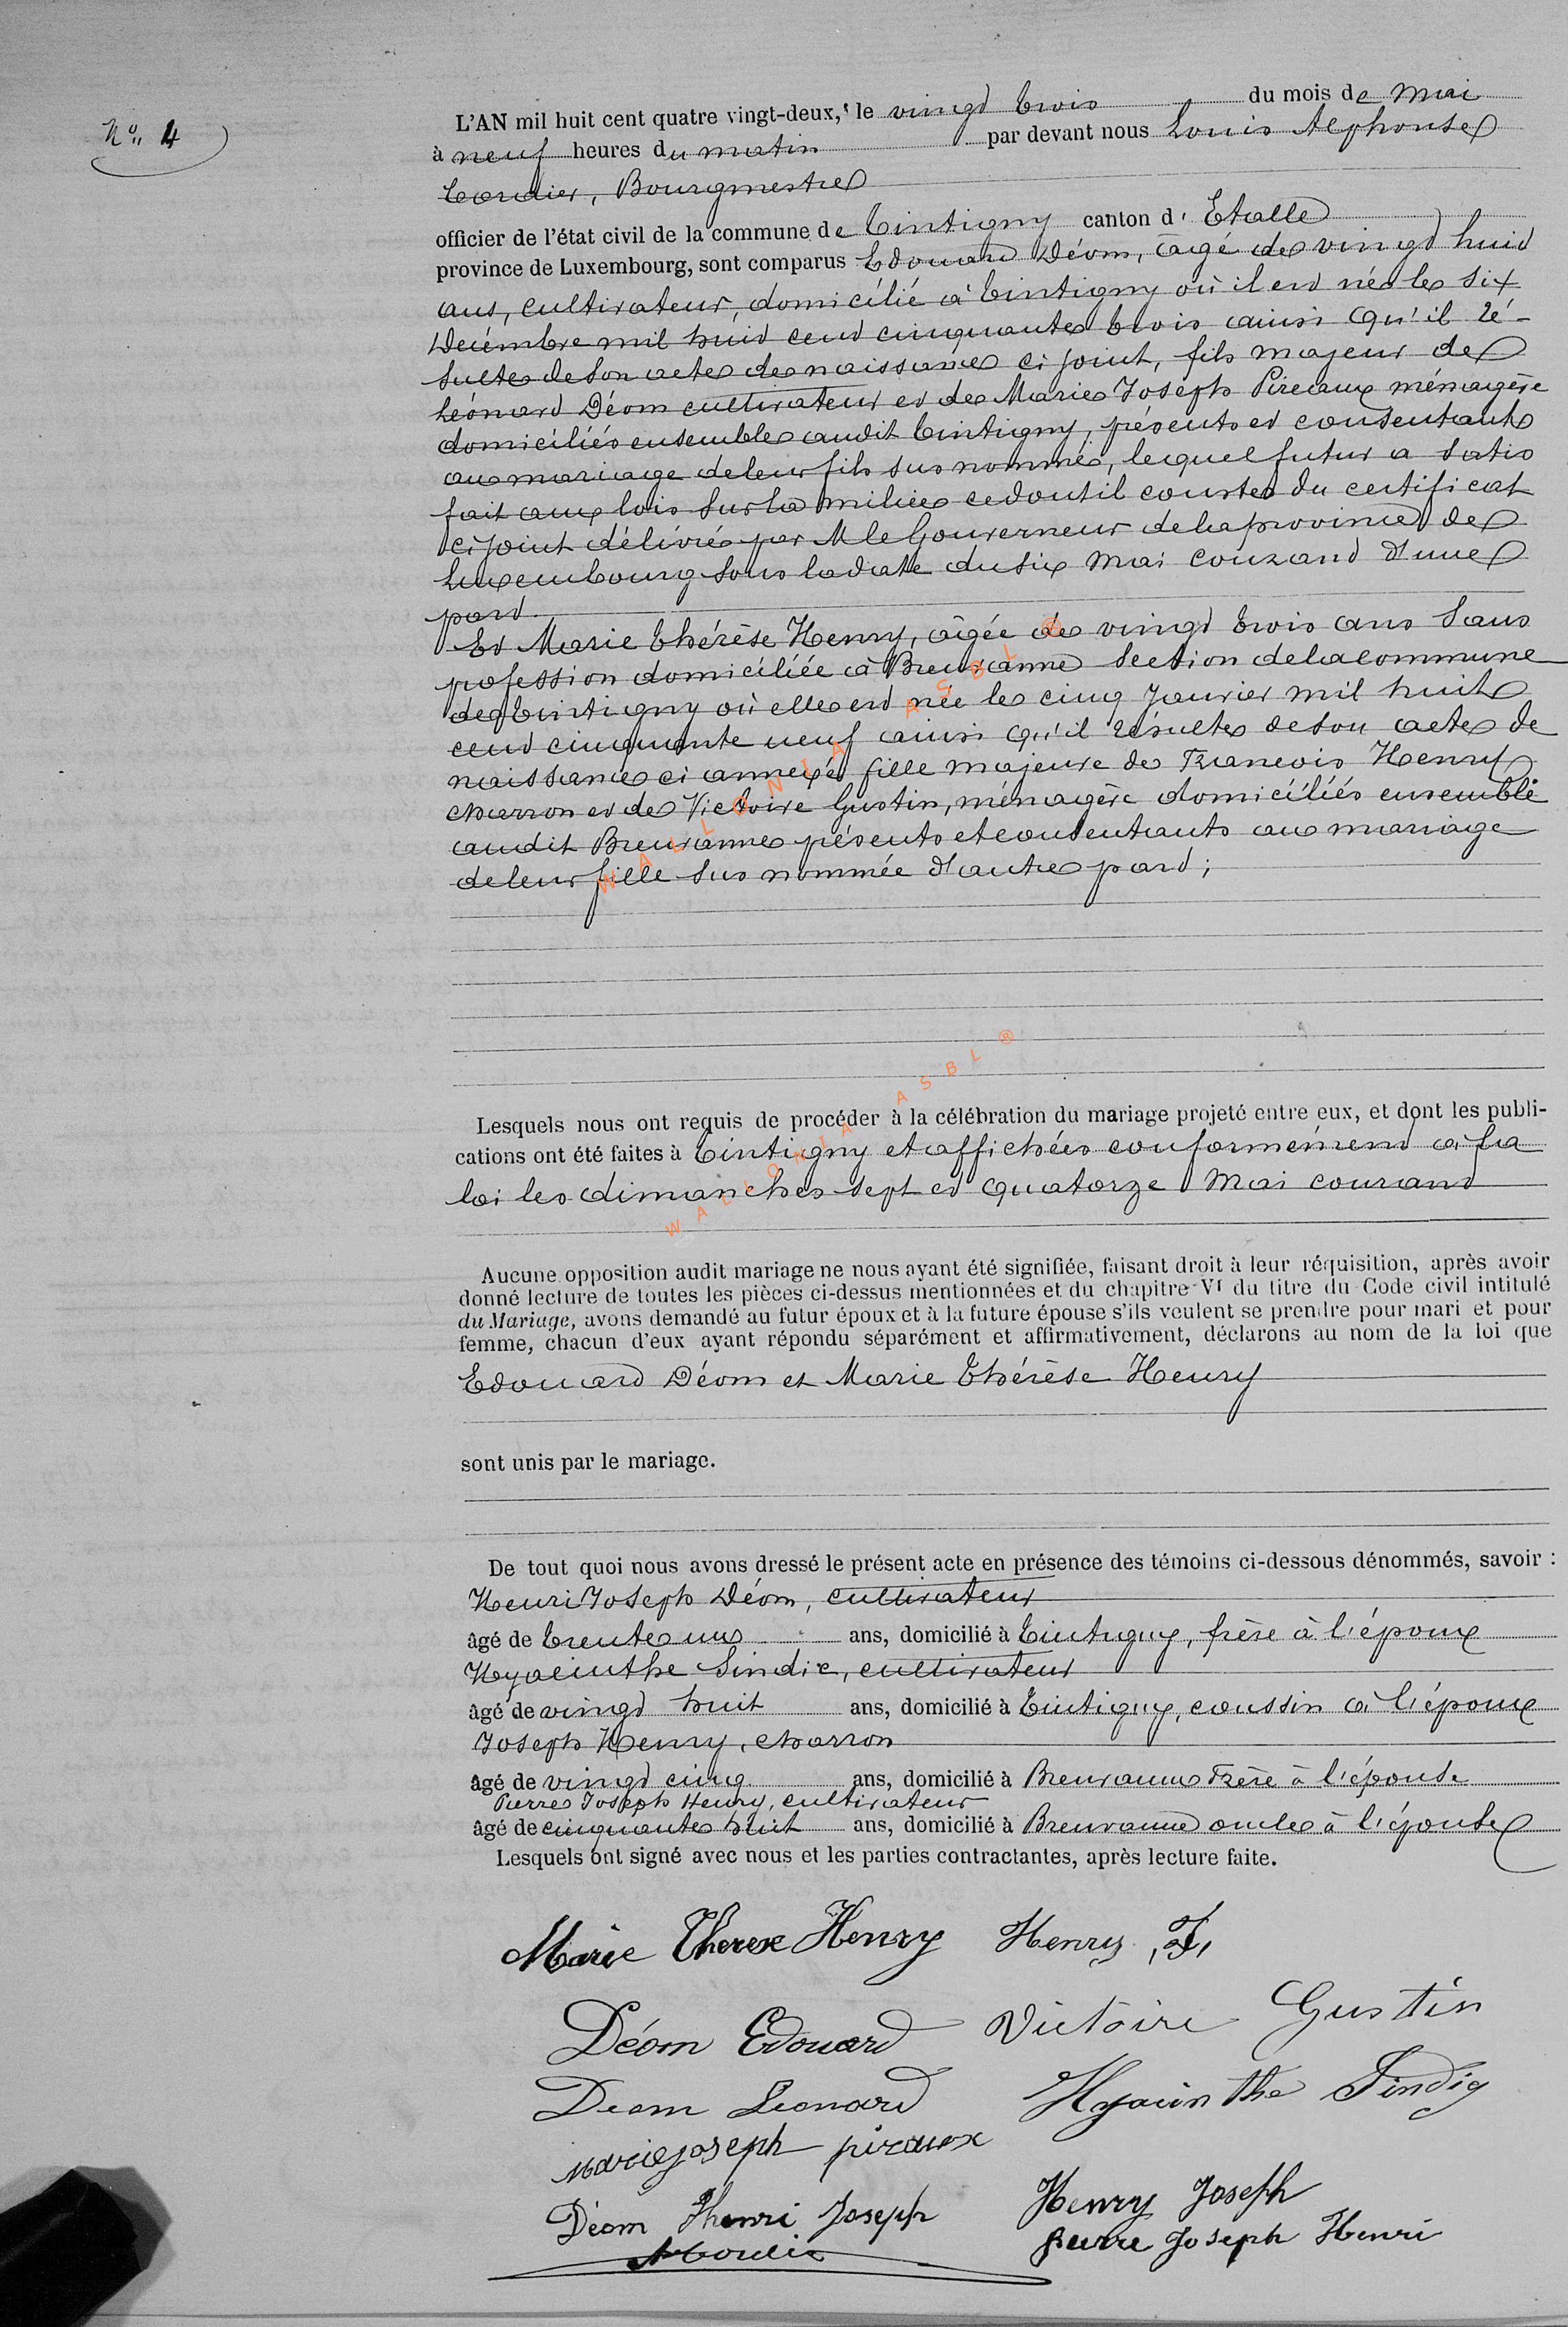 No 4
L'AN mil huit cent quatre vingt-deux, le vingt trois du mois de Mai
à neuf heures du matin par devant nous Louis Alphonse
Cordier, Bourgmestre
officier de l'état civil de la commune de Tintigny canton d' Etalle
province de Luxembourg, sont comparus Edouard Déom, âgé de vingt huit
ans, cultivateur, domicilié à Tintigny où il est né le six
Décembre mil huit cent cinquante trois ainsi qu'il ré-
sulte de son acte de naissance ci joint, fils majeur de
Léonard Déom cultivateur et de Marie Joseph Pireaux ménagère
domiciliés ensemble audit Tintigny, présents et consentants
au mariage de leur fils sus nommé, lequel futur a satis
fait aux lois sur la milice ce dont il conste du certificat
ci joint délivré par M le Gouverneur de la province de
Luxembourg sous la date du six Mai courant d'une
part.
Et Marie Thérèse Henry, âgée de vingt trois ans sans
profession domiciliée à Breuvanne section de la commune
de Tintigny où elle est née le cinq Janvier mil huit
cent cinquante neuf ainsi qu'il résulte de son acte de
naissance ci annexé fille majeure de Francois Henry
charron et de Victoire Gustin, ménagère domiciliés ensemble
audit Breuvanne présents et consentants au mariage
de leur fille sus nommée d'autre part;
WALLONIA ASBL ®
Lesquels nous ont requis de procéder à la célébration du mariage projeté entre eux, et dont les publi-
cations ont été faites à Tintigny et affichées conformément à la
loi les dimanches sept et quatorze Mai courant
WALLONIA ASBL ®
Aucune opposition audit mariage ne nous ayant été signifiée, faisant droit à leur réquisition, après avoir
donné lecture de toutes les pièces ci-dessus mentionnées et du chapitre VI du titre du Code civil intitulé
du Mariage, avons demandé au futur époux et à la future épouse s'ils veulent se prendre pour mari et pour
femme, chacun d'eux ayant répondu séparément et affirmativement, déclarons au nom de la loi que
Edouard Déom et Marie Thérèse Henry
sont unis par le mariage.
De tout quoi nous avons dressé le présent acte en présence des témoins ci-dessous dénommés, savoir :
Henri Joseph Déom, cultivateur
âgé de trente un ans, domicilié à Tintigny, frère à l'époux
Hyacinthe Sindic, cultivateur
âgé de vingt huit ans, domicilié à Tintigny, coussin à l'époux
Joseph Henry, charron
âgé de vingt cinq ans, domicilié à Breuvanne Frère à l'épouse
Pierre Joseph Henry, cultivateur
âgé de cinquante huit ans, domicilié à Breuvanne oncle à l'épouse
Lesquels ont signé avec nous et les parties contractantes, après lecture faite.
Marie Therese Henry Henry, F,
Déom Edouard Victoire Gustin
Deom Leonard Hyacinthe Sindig
marie joseph piraux
Déom Henri Joseph Henry Joseph
pierre Joseph Henri